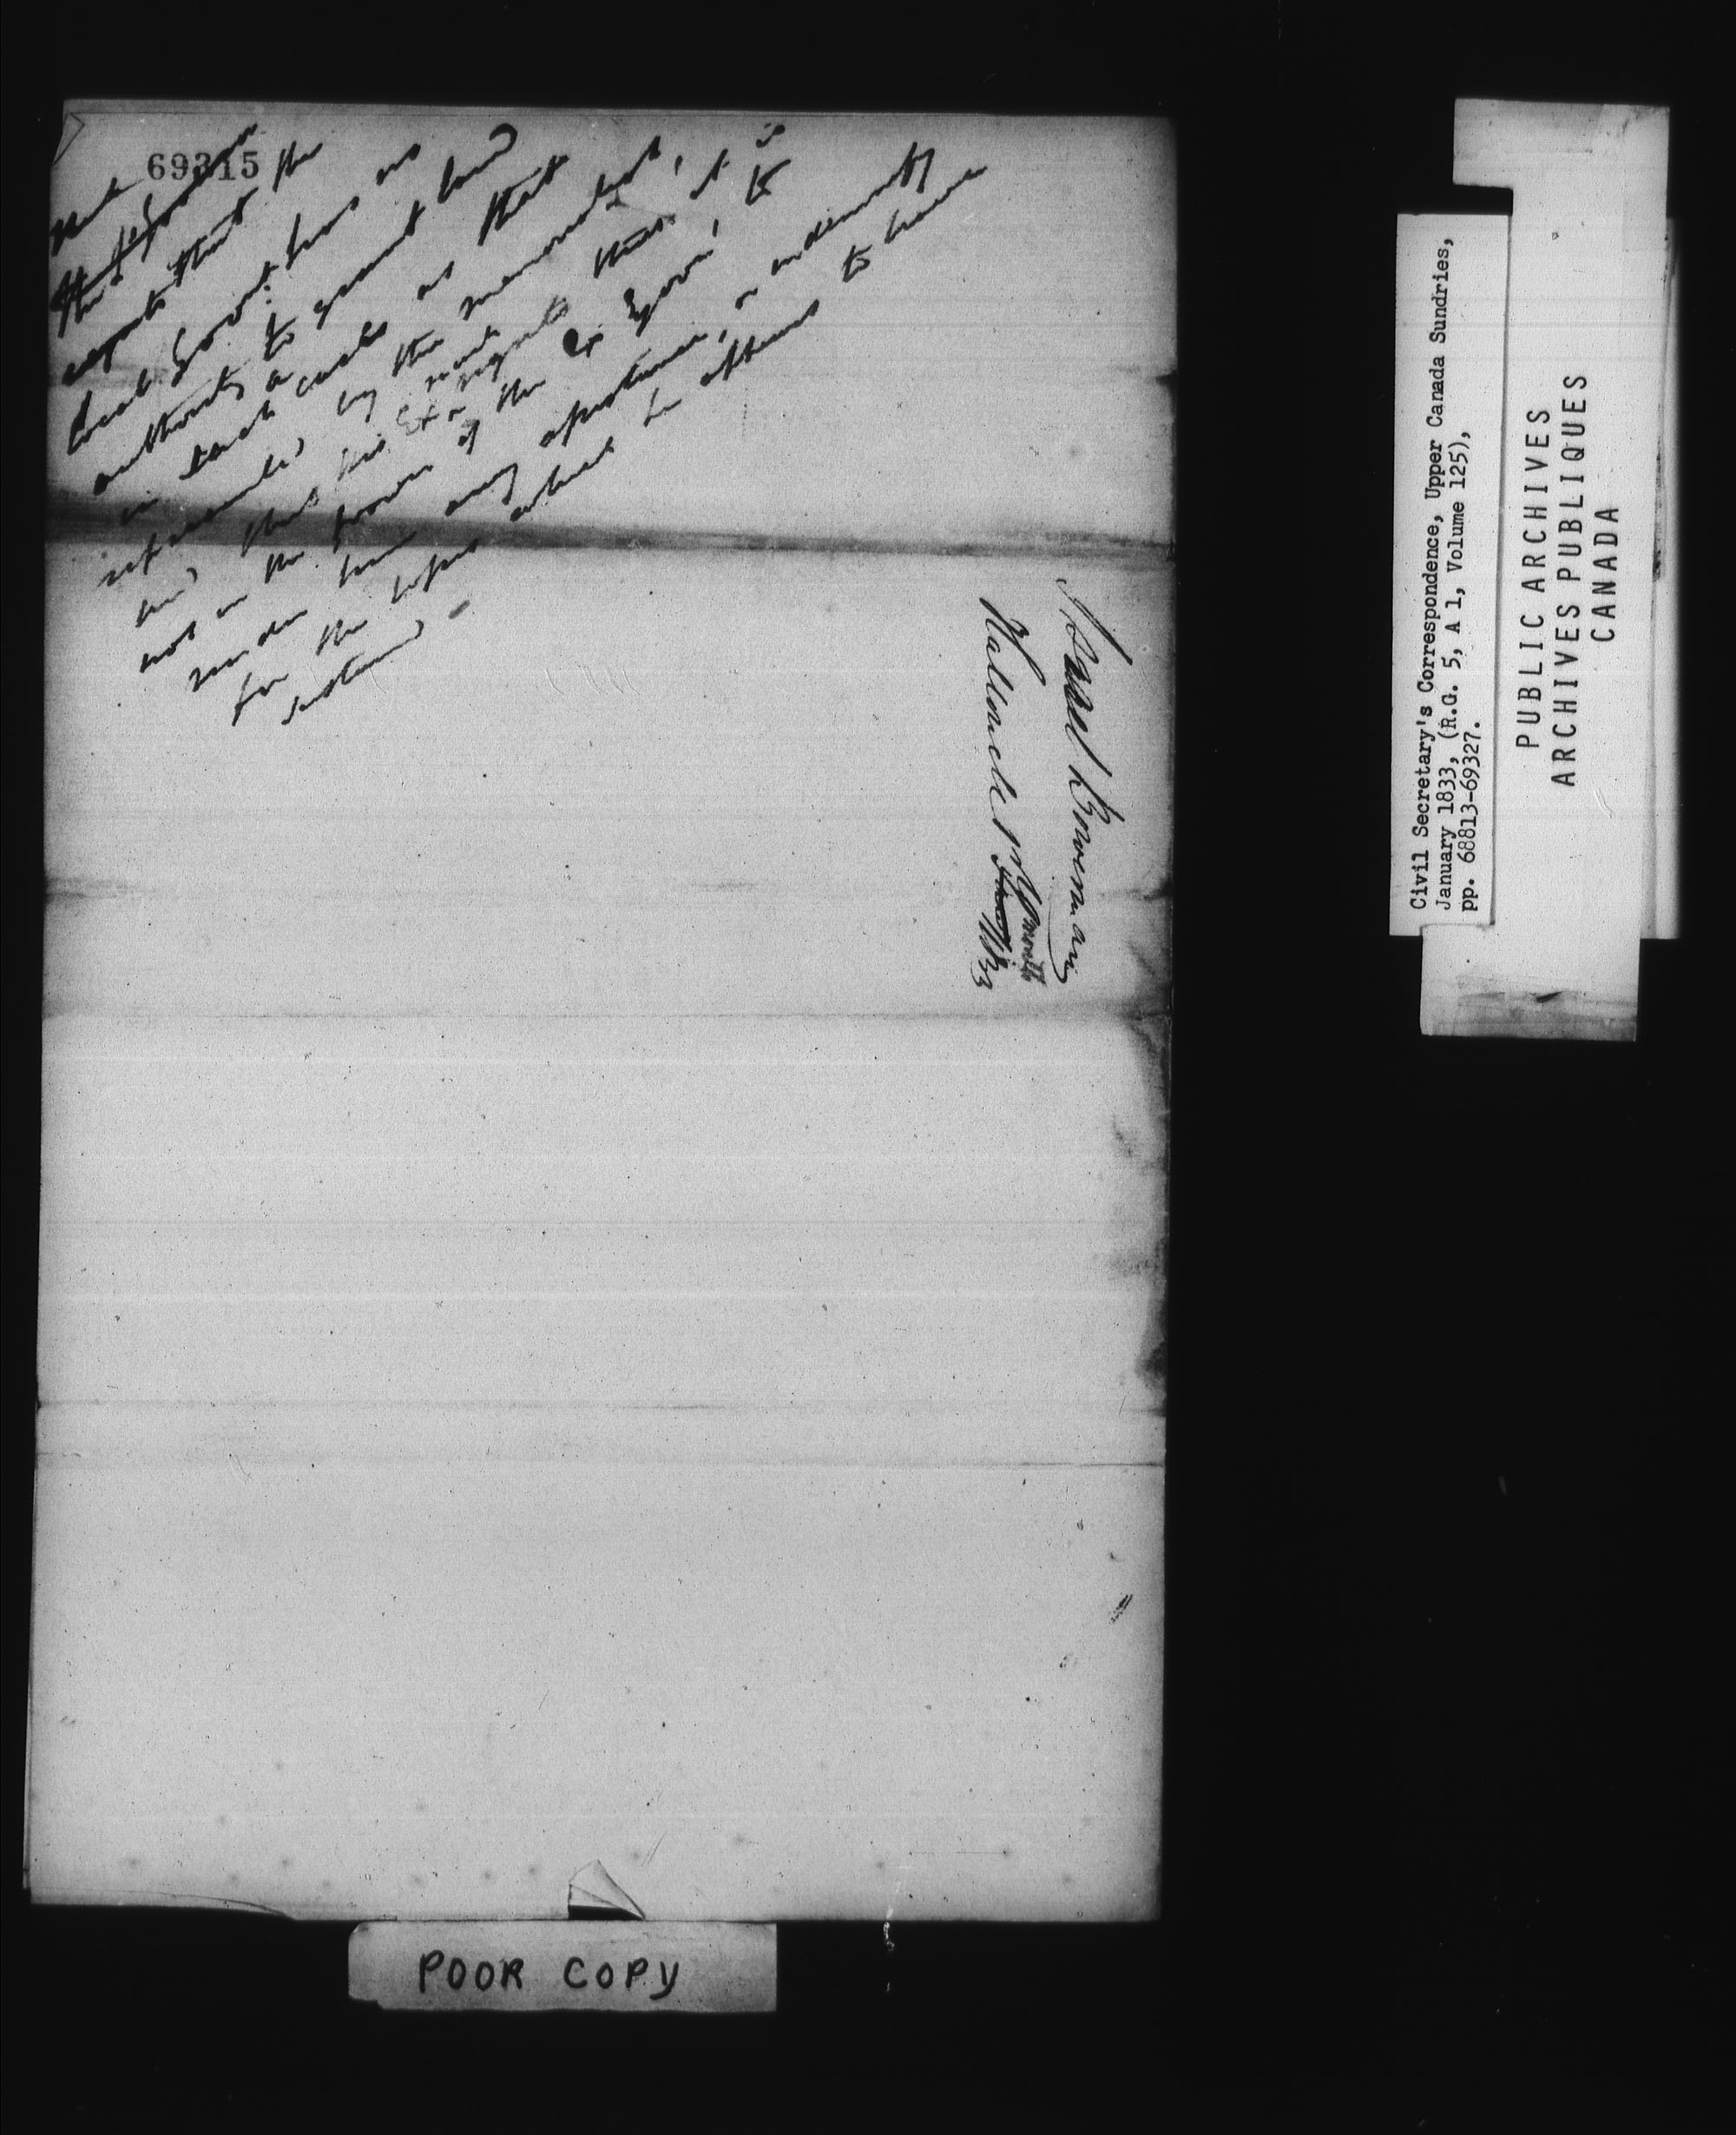 69315
that the
local Govnt has no
authority to grant land
in such a case as that
represented by the memorialist,
and that his Ex. regrets that it is
not in the power of the Ex Govnt, to
render him any assistance, or indemnity
for the losses which he affirms to have
sustained —
Israel Bowerman
Hallowell
Civil Secretary's Correspondence, Upper Canada Sundries,
January 1833, (R.G. 5, A 1, Volume 125),
pp. 68813-69327.
PUBLIC ARCHIVES
ARCHIVES PUBLIQUES
CANADA
POOR COPY